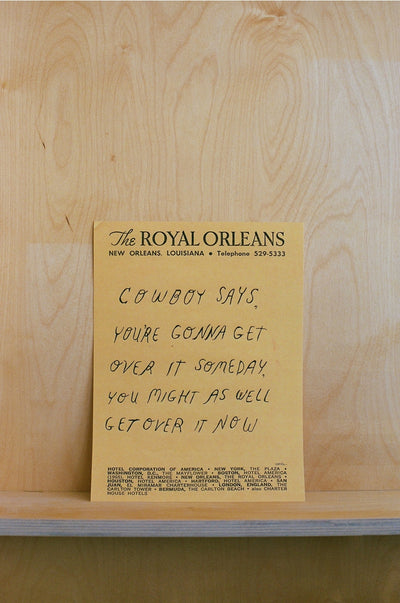 The ROYAL ORLEANS
NEW ORLEANS, LOUISIANA • Telephone 529-5333
COWBOY SAYS,
YOU'RE GONNA GET
OVER IT SOMEDAY,
YOU MIGHT AS WELL
GET OVER IT NOW
HOTEL CORPORATION OF AMERICA • NEW YORK, THE PLAZA •
WASHINGTON, D.C., THE MAYFLOWER • BOSTON, HOTEL AMERICA
HOTEL KENMORE • NEW ORLEANS, THE ROYAL ORLEANS •
HOUSTON, HOTEL AMERICA • HARTFORD, HOTEL AMERICA • SAN
JUAN, EL MIRAMAR CHARTERHOUSE • LONDON, ENGLAND, THE
CARLTON TOWER • BERMUDA, THE CARLTON BEACH • also CHARTER
HOUSE HOTELS